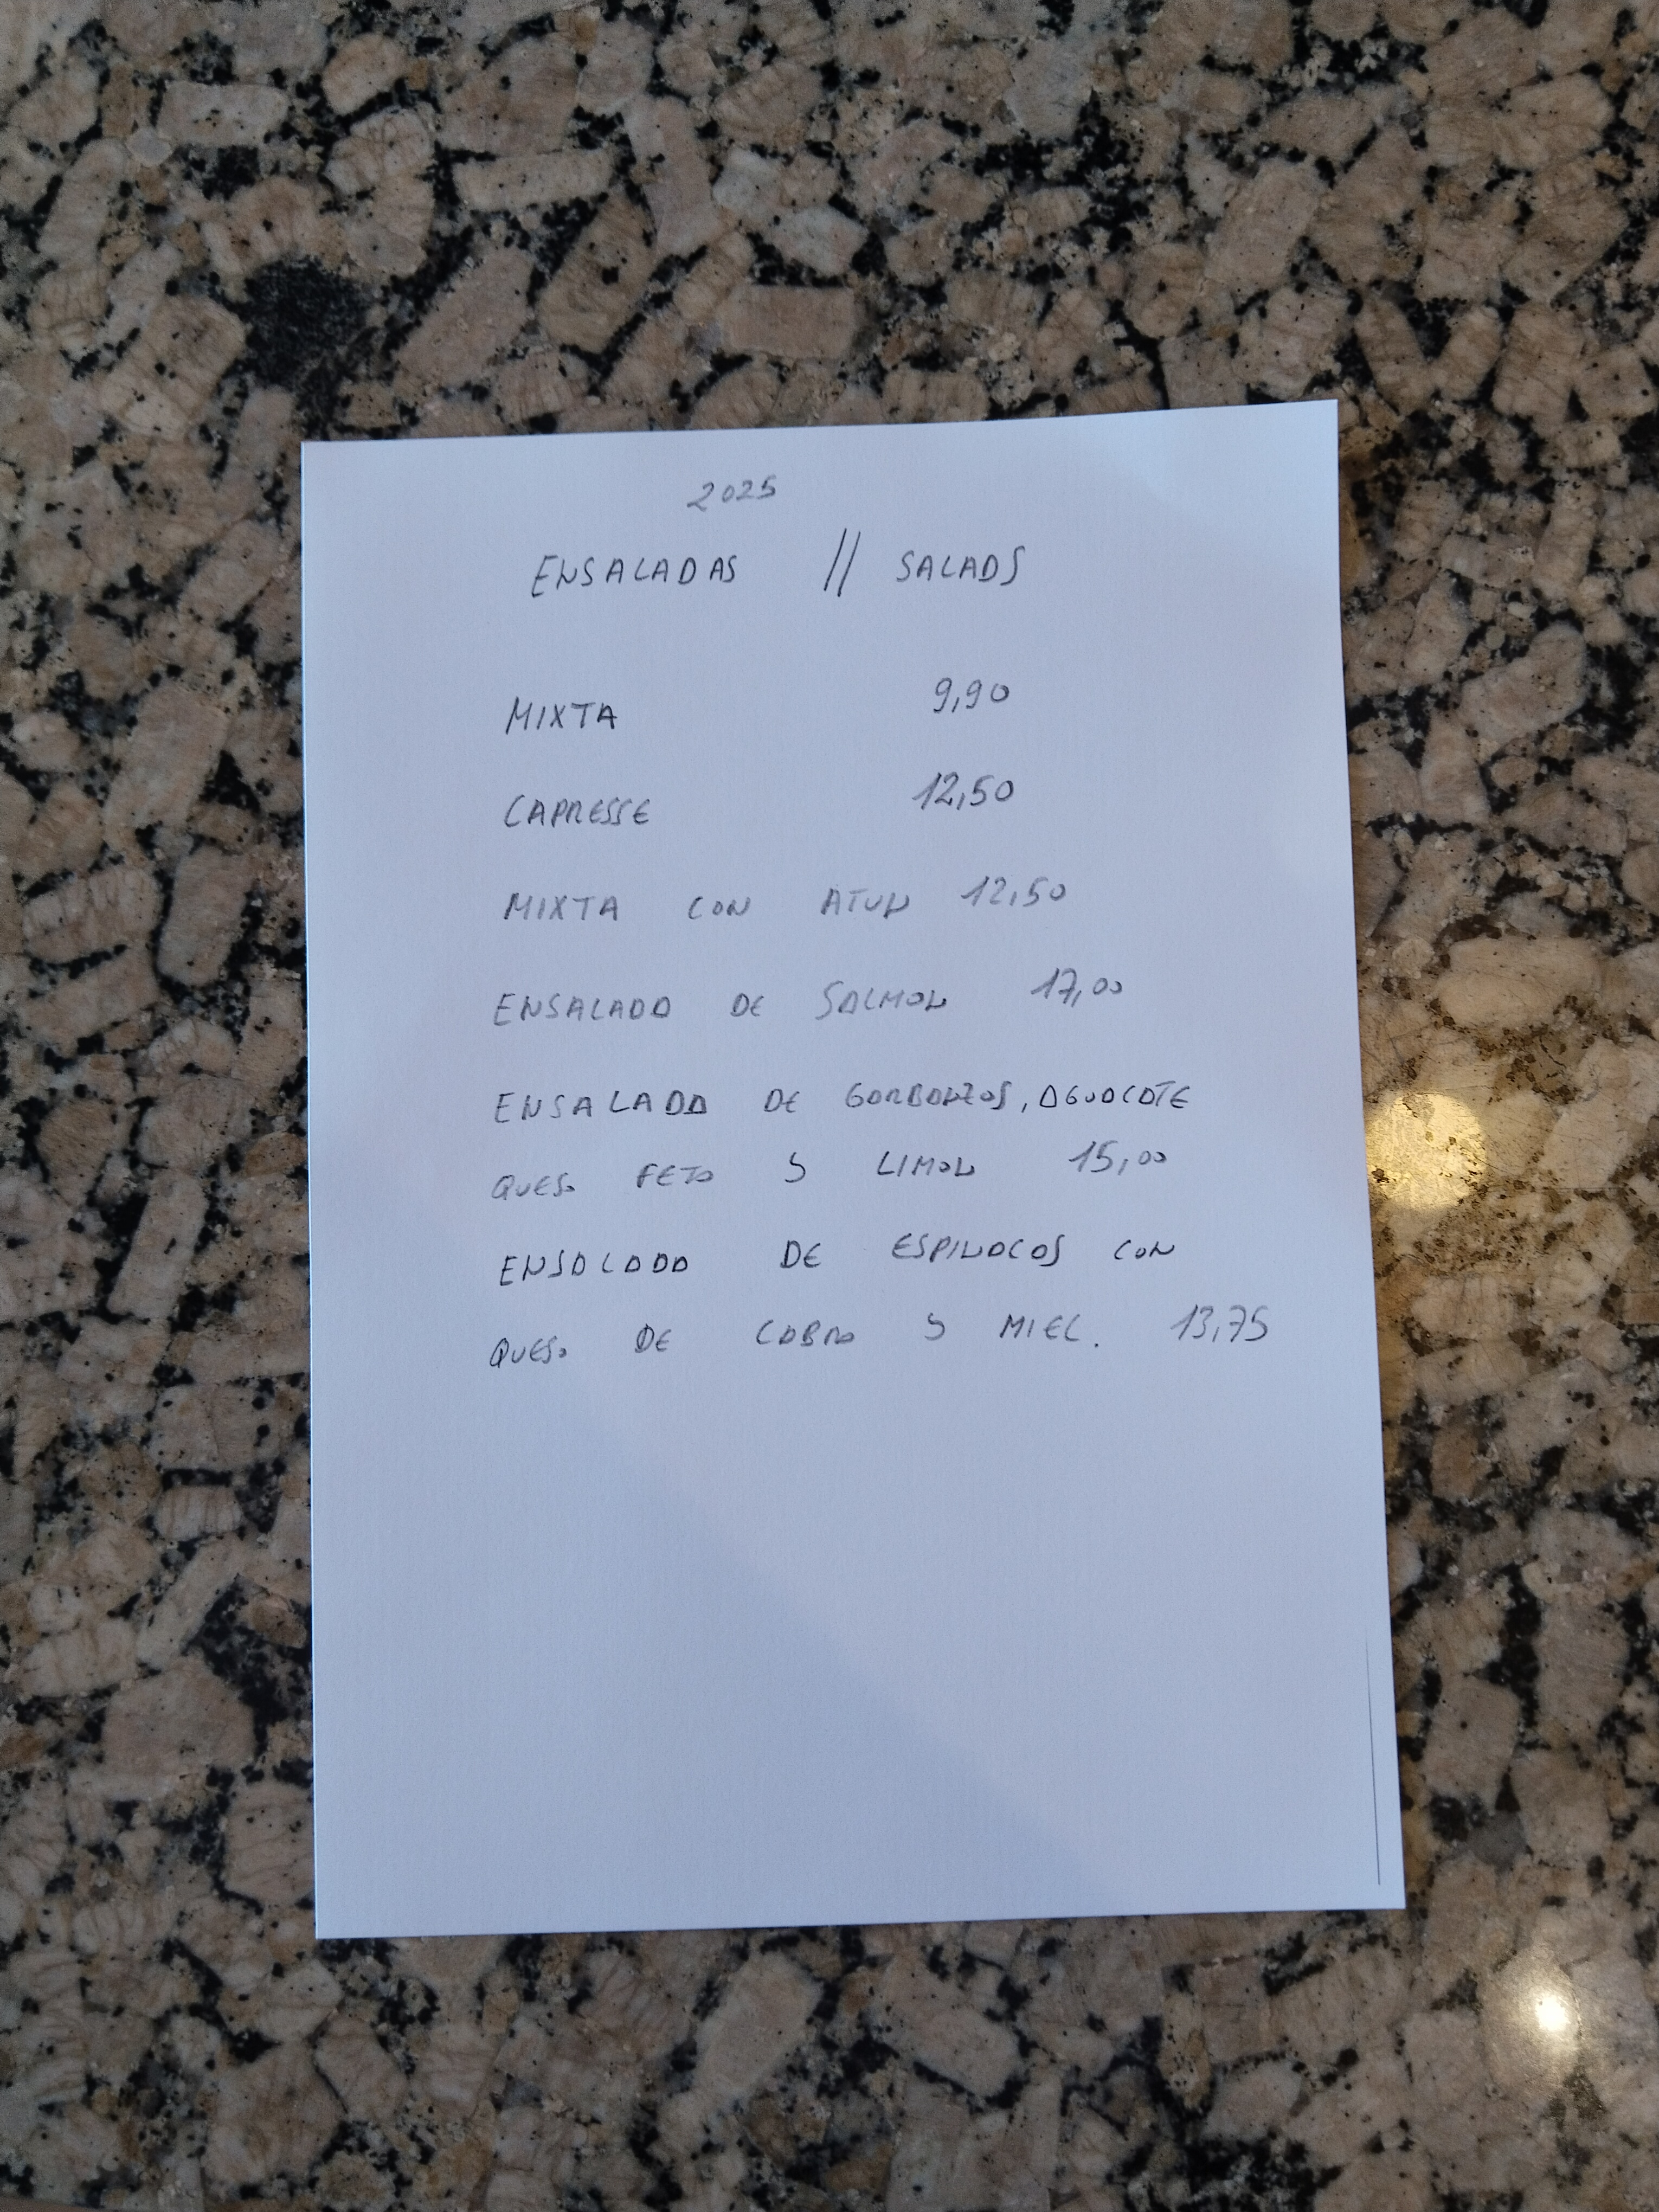 2025
ENSALADAS // SALADS
MIXTA 9,90
CAPRESSE 12,50
MIXTA CON ATUN 12,50
ENSALADA DE SALMON 17,00
ENSALADA DE GARBANZOS, AGUACATE
QUESO FETA Y LIMON 15,00
ENSALADA DE ESPINACAS CON
QUESO DE CABRA Y MIEL. 13,75